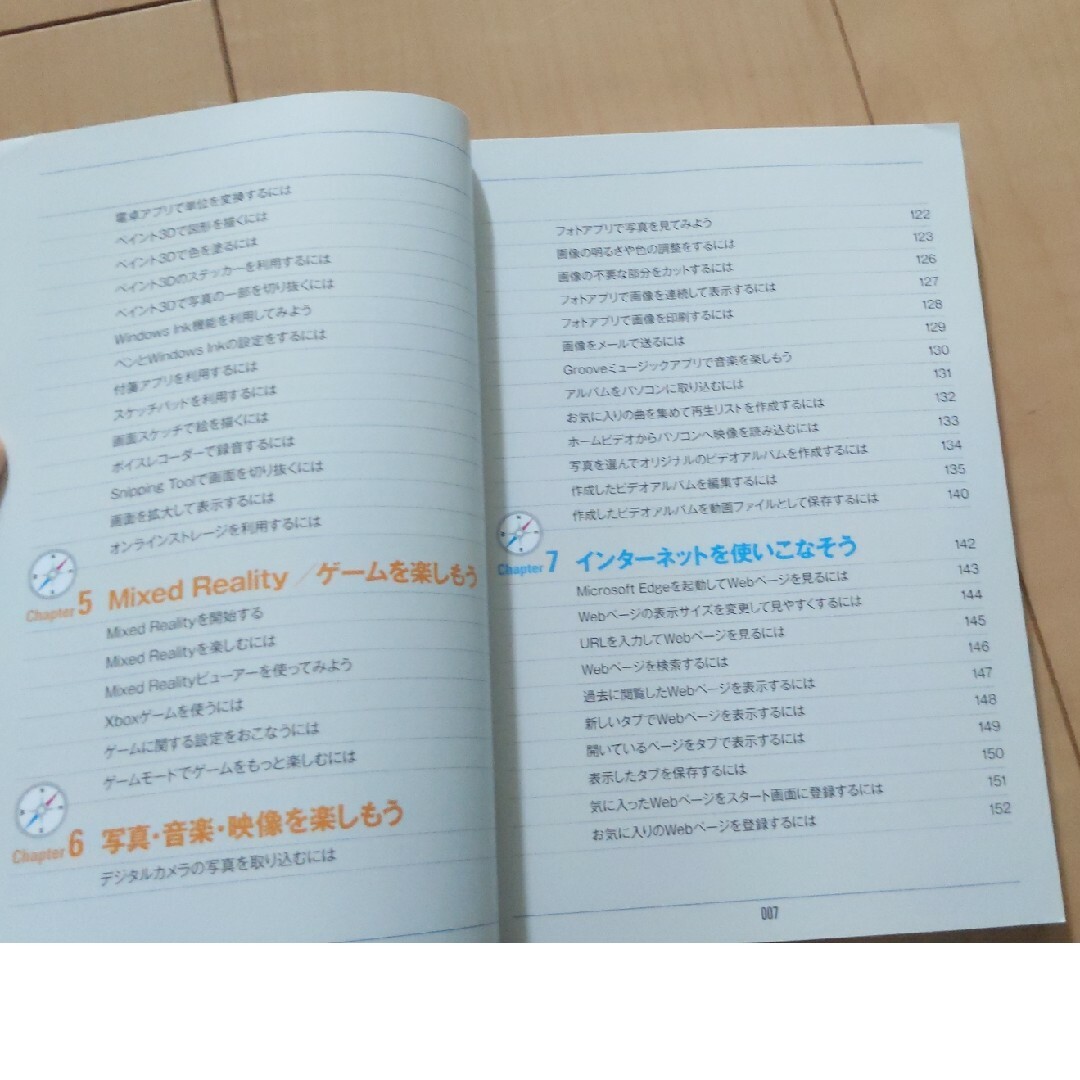 電卓アプリで単位を変換するには
ペイント3Dで図形を描くには
ペイント3Dで色を塗るには
ペイント3Dのステッカーを利用するには
ペイント3Dで写真の一部を切り抜くには
Windows Ink機能を利用してみよう
ペンとWindows Inkの設定をするには
付箋アプリを利用するには
スケッチパットを利用するには
画面スケッチで絵を描くには
ボイスレコーダーで録音するには
Snipping Toolで画面を切り抜くには
画面を拡大して表示するには
オンラインストレージを利用するには
Chapter 5 Mixed Reality/ゲームを楽しもう
Mixed Realityを開始する
Mixed Realityを楽しむには
Mixed Realityビューアーを使ってみよう
Xboxゲームを使うには
ゲームに関する設定をおこなうには
ゲームモードでゲームをもっと楽しむには
Chapter 6 写真・音楽・映像を楽しもう
デジタルカメラの写真を取り込むには
フォトアプリで写真を見てみよう 122
画像の明るさや色の調整をするには 123
画像の不要な部分をカットするには 126
フォトアプリで画像を連続して表示するには 127
フォトアプリで画像を印刷するには 128
画像をメールで送るには 129
Grooveミュージックアプリで音楽を楽しもう 130
アルバムをパソコンに取り込むには 131
お気に入りの曲を集めて再生リストを作成するには 132
ホームビデオからパソコンへ映像を読み込むには 133
写真を選んでオリジナルのビデオアルバムを作成するには 134
作成したビデオアルバムを編集するには 135
作成したビデオアルバムを動画ファイルとして保存するには 140
Chapter 7 インターネットを使いこなそう 142
Microsoft Edgeを起動してWebページを見るには 143
Webページの表示サイズを変更して見やすくするには 144
URLを入力してWebページを見るには 145
Webページを検索するには 146
過去に閲覧したWebページを表示するには 147
新しいタブでWebページを表示するには 148
開いているページをタブで表示するには 149
表示したタブを保存するには 150
気に入ったWebページをスタート画面に登録するには 151
お気に入りのWebページを登録するには 152
007